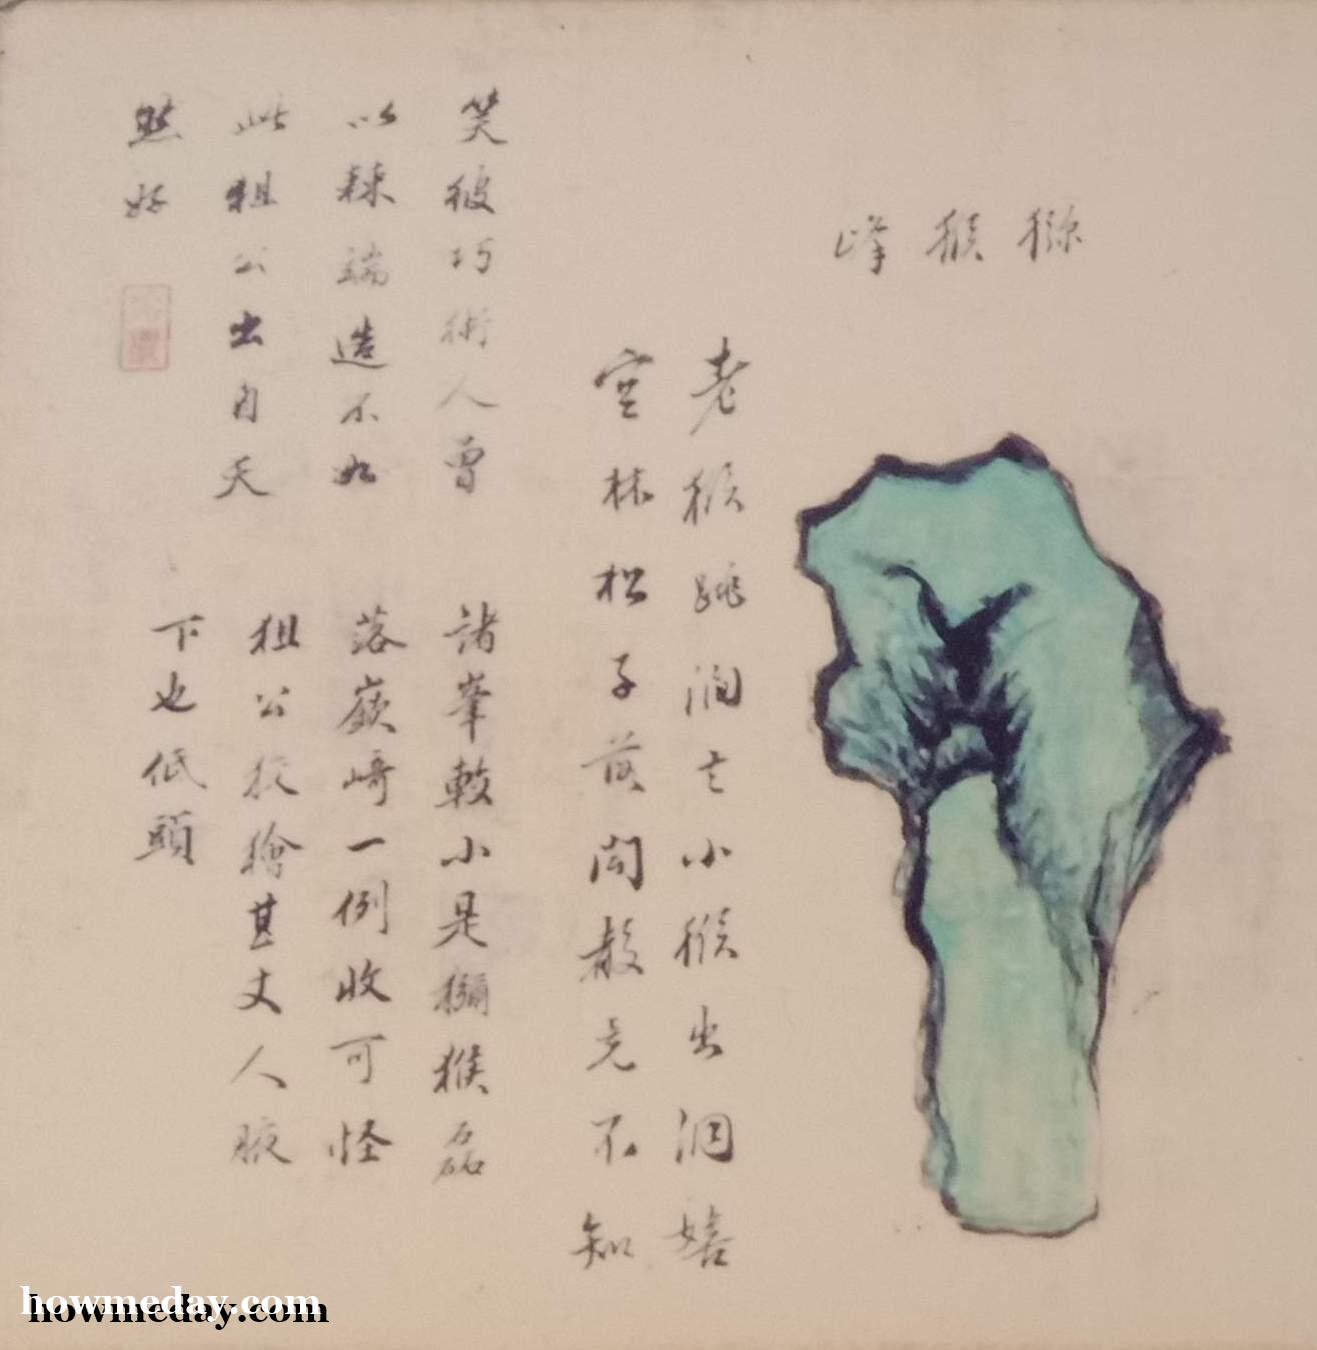 猕猴峰
老猴跳澗去小猴出洞嬉
空林松子落閧散竟不知
笑彼巧術人曾
以棘端造不如
此狙公出自天
然好
諸峯較小是獼猴磊
落嶔崎一例收可怪
狙公狡獪甚丈人腋
下也低頭
howmeday.com